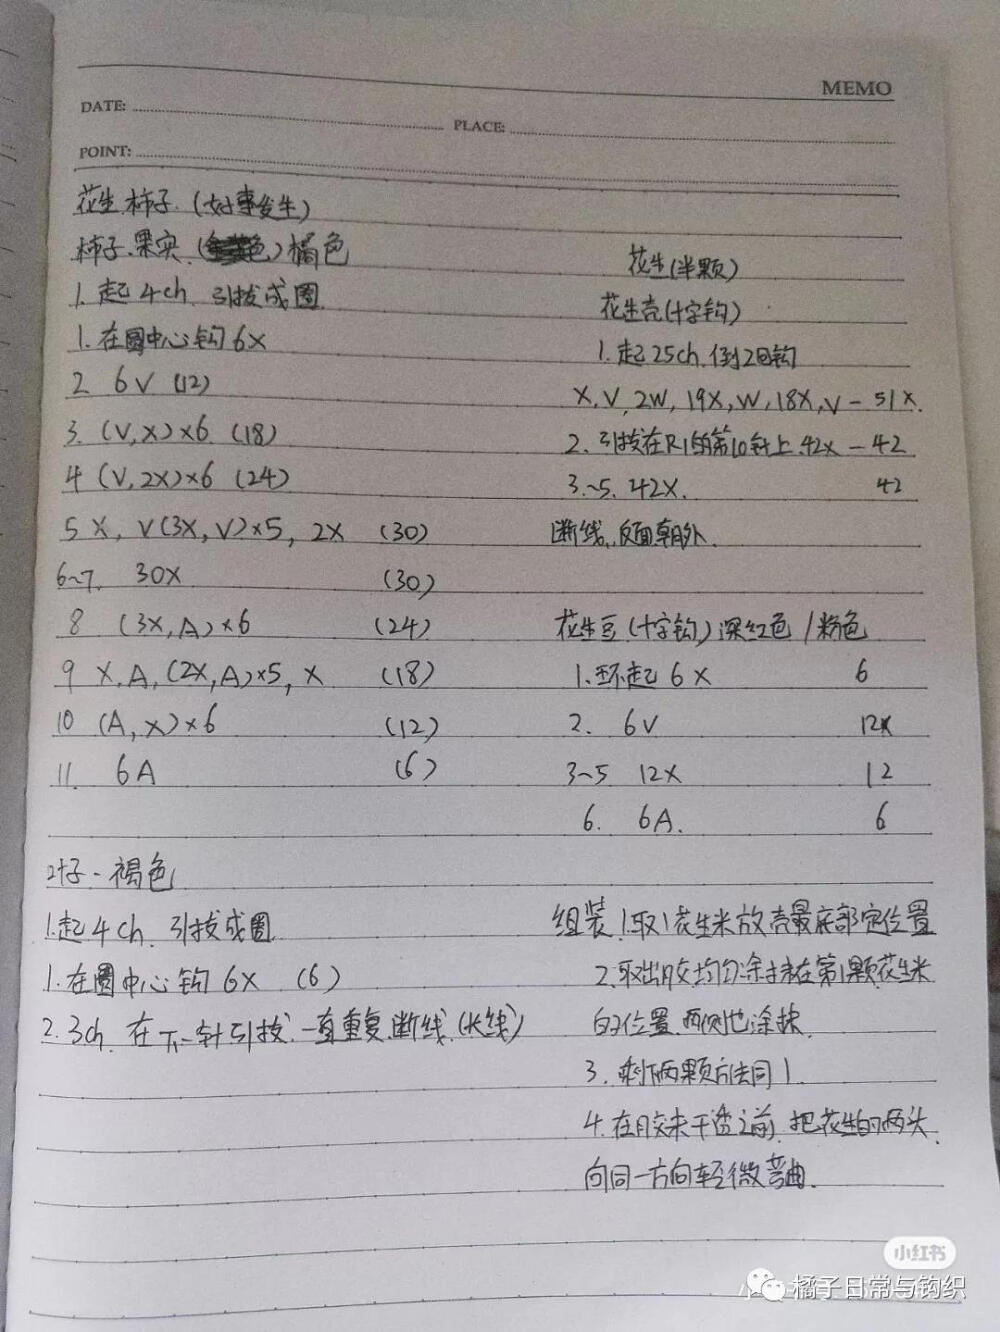 MEMO
DATE:
PLACE:
POINT:
花生柿子.(好事发生)
柿子.果实.(色)橘色
1.起4ch.引拔成圈
1.在圈中心钩6X
2 6V (12)
3. (V,X)×6 (18)
4 (V,2X)×6 (24)
5 X, V(3X,V)×5, 2X (30)
6~7. 30X (30)
8 (3X,A)×6 (24)
9 X.A,(2X,A)×5, X (18)
10 (A,X)×6 (12)
11. 6A (6)
叶子-褐色
1.起4ch.引拔成圈
1.在圈中心钩6X (6)
2.3ch.在下一针引拔.一直重复.断线.(长线)
花生(半颗)
花生壳(十字钩)
1.起25ch.倒2回钩
X,V,2W,19X,W,18X,V-51X.
2.引拔在R1的第10针上.42X-42
3~5. 42X. 42
断线.反面朝外.
花生豆(十字钩)深红色/粉色
1.环起6X 6
2. 6V 12X
3~5 12X 12
6. 6A. 6
组装.1.取1花生米放壳最底部定位置
2.取出胶均匀涂抹在第1颗花生米
的位置.两侧也涂抹.
3.剩下两颗方法同1.
4.在胶未干透之前.把花生的两头.
向同一方向轻微弯曲.
小红书
橘子日常与钩织